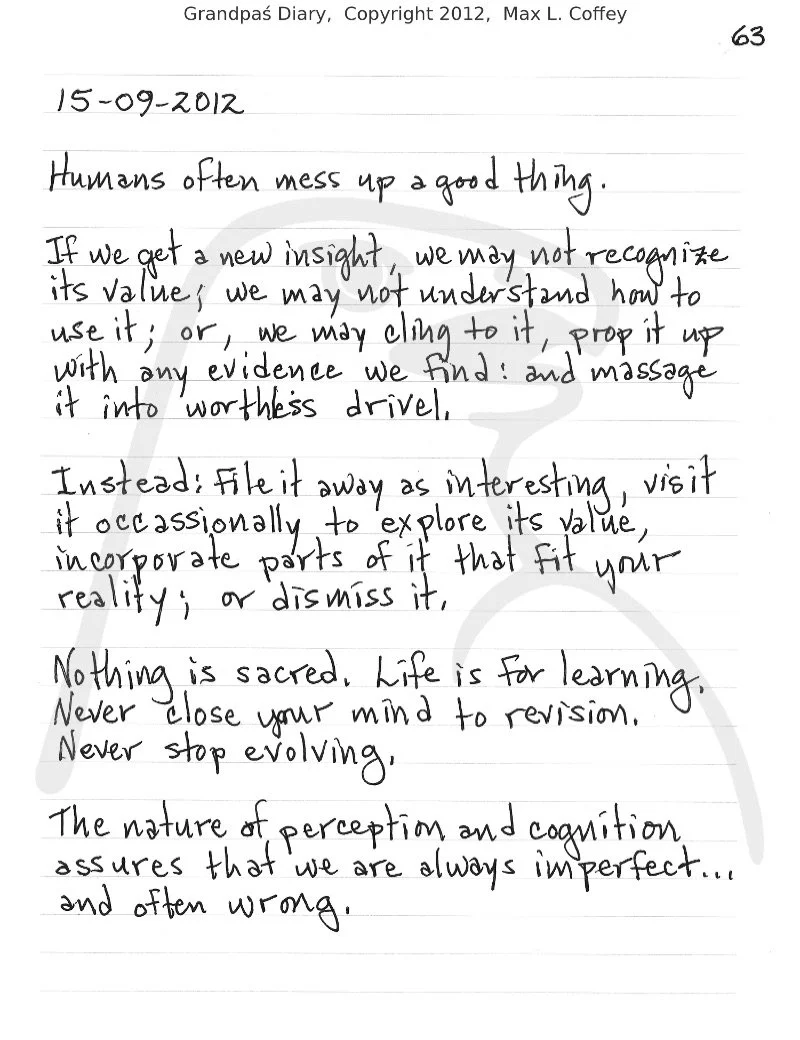 Grandpaś Diary, Copyright 2012, Max L. Coffey
63
15-09-2012
Humans often mess up a good thing.
If we get a new insight, we may not recognize
its value; we may not understand how to
use it; or, we may cling to it, prop it up
with any evidence we find: and massage
it into worthless drivel.
Instead: File it away as interesting, visit
it occassionally to explore its value,
incorporate parts of it that fit your
reality; or dismiss it.
Nothing is sacred. Life is for learning.
Never close your mind to revision.
Never stop evolving.
The nature of perception and cognition
assures that we are always imperfect...
and often wrong.